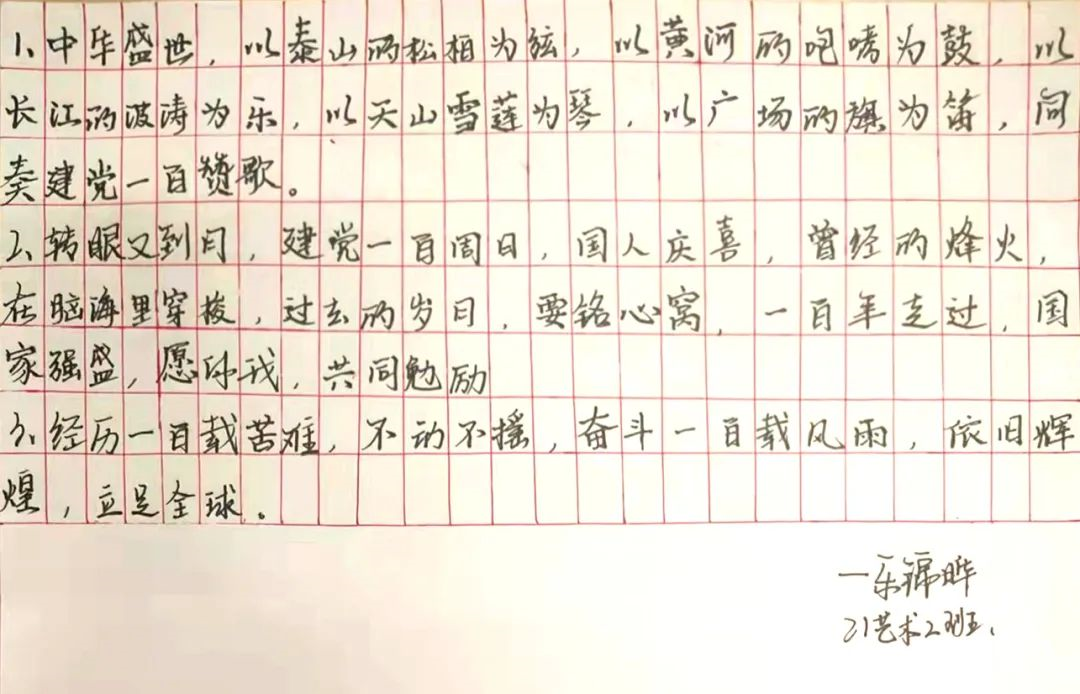 1、中华盛世，以泰山的松相为弦，以黄河的咆哮为鼓，以
长江的波涛为乐，以天山雪莲为琴，以广场的旗为笛，同
奏建党一百赞歌。
2、转眼又到月，建党一百周日，国人庆喜，曾经的烽火，
在脑海里穿梭，过去的岁日，要铭心窝，一百年走过，国
家强盛，愿你我，共同勉励
3、经历一百载苦难，不动不摇，奋斗一百载风雨，依旧辉
煌，立足全球。
一乐锦晔
21艺术2班.